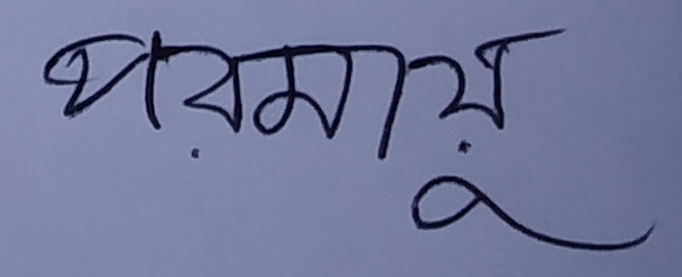 পরমায়ু